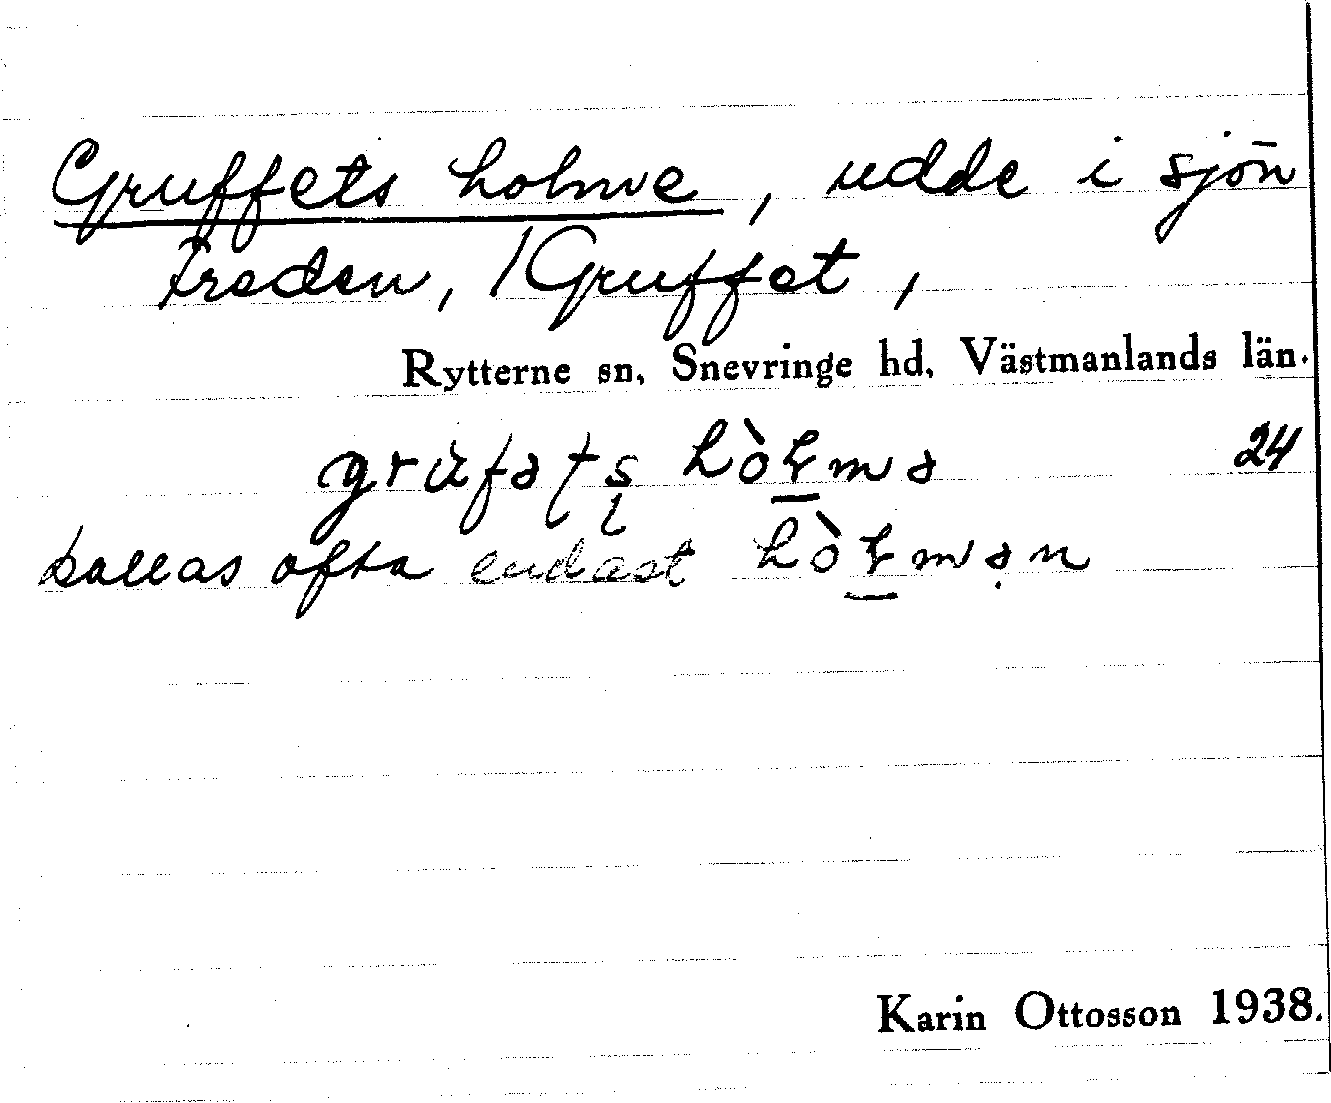 Gruffets holme, udde i sjön
Freden, 1 Gruffet,
Rytterne sn, Snevringe hd, Västmanlands län.
24
kallas ofta endast
Karin Ottosson 1938.